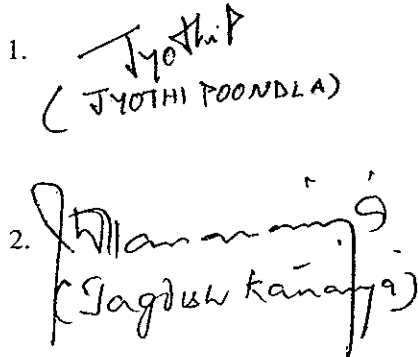 1. JyothiP
(JYOTHI POONDLA)
2.
(Jagdish Kanariya)